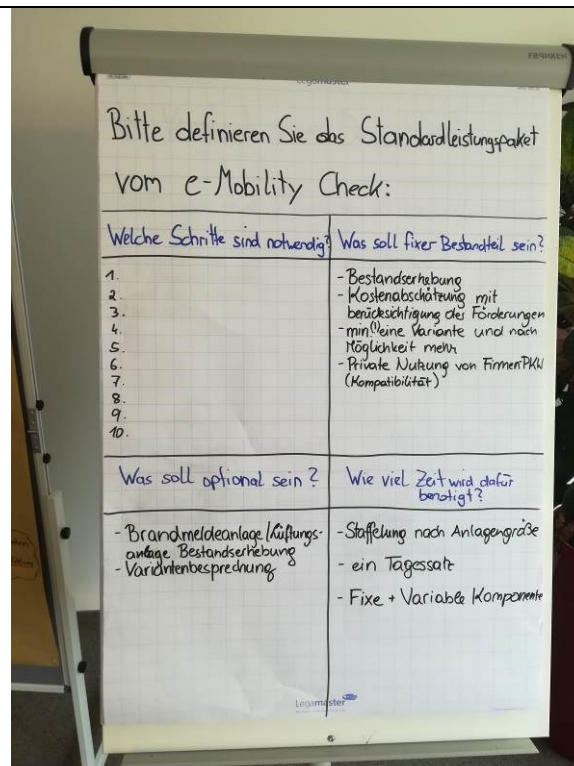 FRANKEN
Legamaster
Bitte definieren Sie das Standardleistungspaket
vom e-Mobility Check:
Welche Schritte sind notwendig?
1.
2.
3.
4.
5.
6.
7.
8.
9.
10.
Was soll fixer Bestandteil sein?
- Bestandserhebung
- Kostenabschätzung mit
berücksichtigung der Förderungen
- min.(!) eine Variante und nach
Möglichkeit mehr
- Private Nutzung von FirmenPKW
(Kompatibilität)
Was soll optional sein?
- Brandmeldeanlage/Lüftungs-
anlage Bestandserhebung
- Variantenbesprechung
Wie viel Zeit wird dafür
benötigt?
- Staffelung nach Anlagengröße
- ein Tagessatz
- Fixe + Variable Komponente
Legamaster